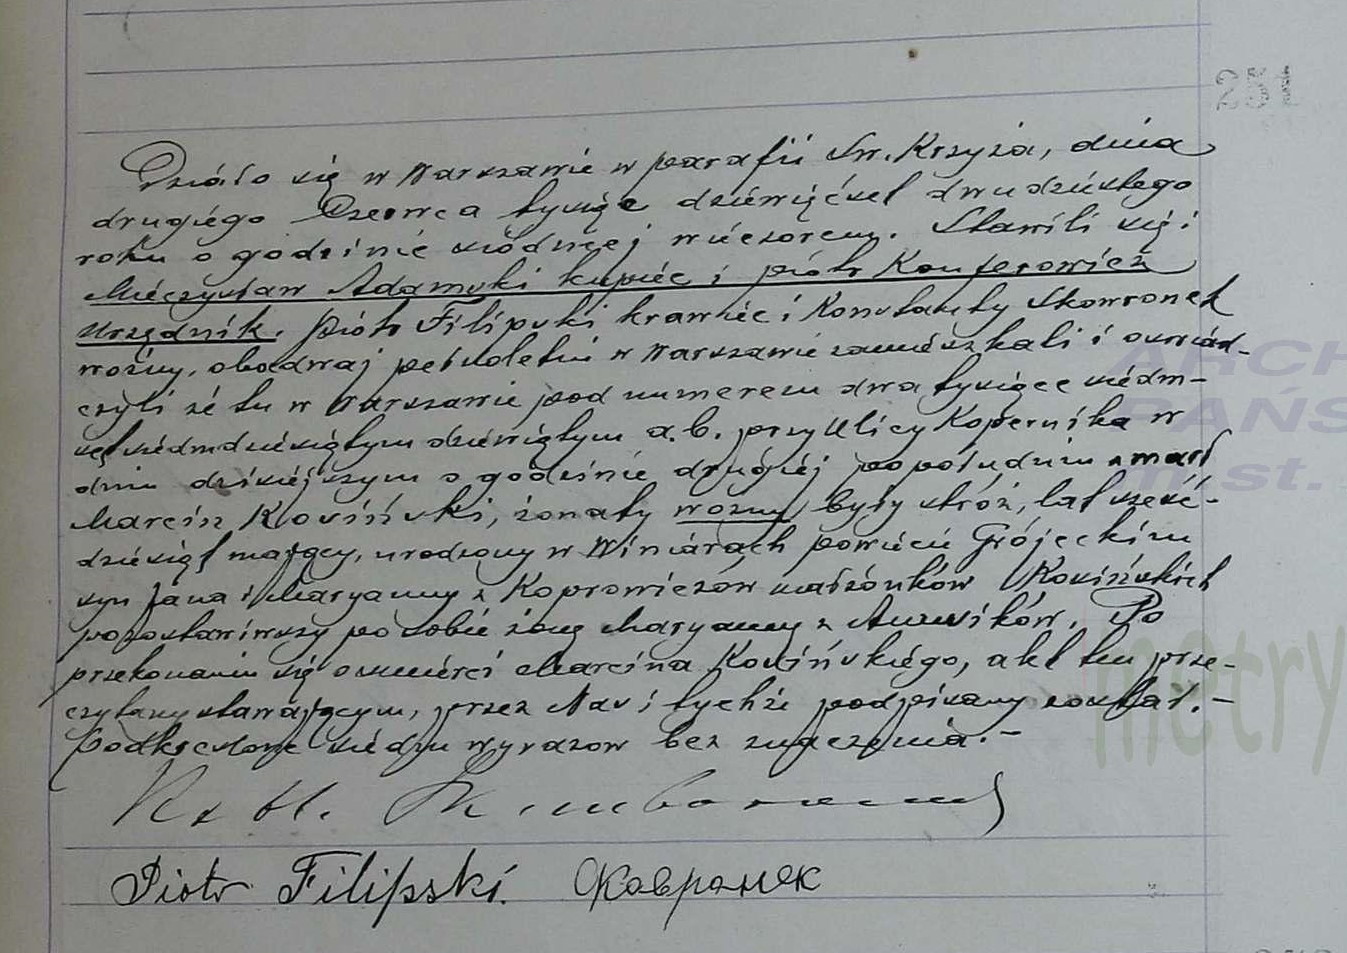 Działo się w Warszawie w parafii Św. Krzyża, dnia
drugiego Czerwca tysiąc dziewięćset dwudziestego
roku o godzinie siódmej wieczorem. Stawili się:
Mieczysław Adamski kupiec i Piotr Konferowicz
urzędnik. Piotr Filipski krawiec i Konstanty Skowronek
woźny, obadwaj pełnoletni w Warszawie zamieszkali i oświad-
czyli że tu w Warszawie pod numerem dwa tysiące siedm-
set siedmdziesiątym dziewiątym a.b. przy Ulicy Kopernika w
dniu dzisiejszym o godzinie drugiej popołudniu zmarł
Marcin Kosiński, żonaty woźny były stróż, lat sześć-
dziesiąt mający, urodzony w Winiarach powiecie Grójeckim
syn Jana i Maryanny z Koprowiczów małżonków Kosińskich
pozostawiwszy po sobie żonę Maryannę z. Po
przekonaniu się o śmierci Marcina Kosińskiego, akt ten prze-
czytany stawającym, przez Nas i tychże podpisany został.-
Podkreślone siedm wyrazów bez znaczenia.-
Piotr Filipski. Скавронек
25
ARCH
PAŃS
m.st.
metry